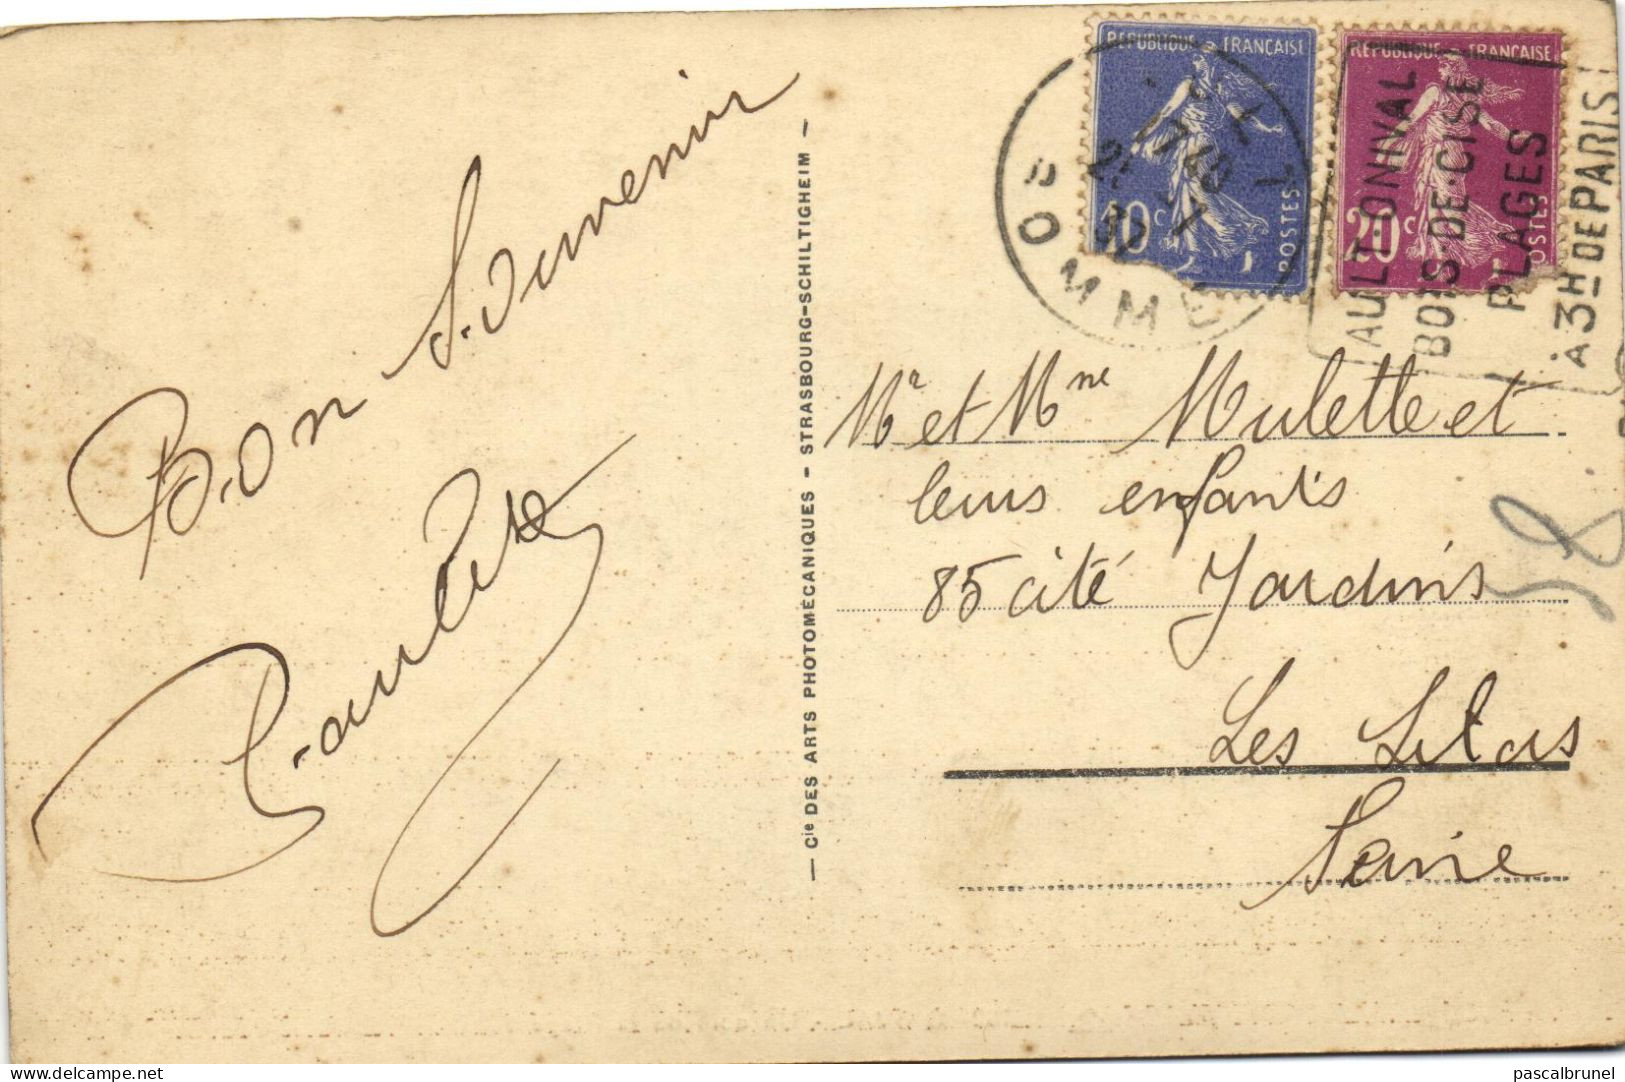 Bon Souvenir
Paulette
— Cie DES ARTS PHOTOMÉCANIQUES - STRASBOURG-SCHILTIGHEIM —
RÉPUBLIQUE FRANÇAISE
10c
POSTES
RÉPUBLIQUE FRANÇAISE
20c
POSTES
AULT
17 40
21 -7
SOMME
AULT·ONIVAL
BOIS-DE-CISE
PLAGES
A 3H DE PARIS
Mr et Mme Mulette et
leurs enfants
85 cité Jardins
Les Lilas
Seine
58
delcampe.net
pascalbrunel